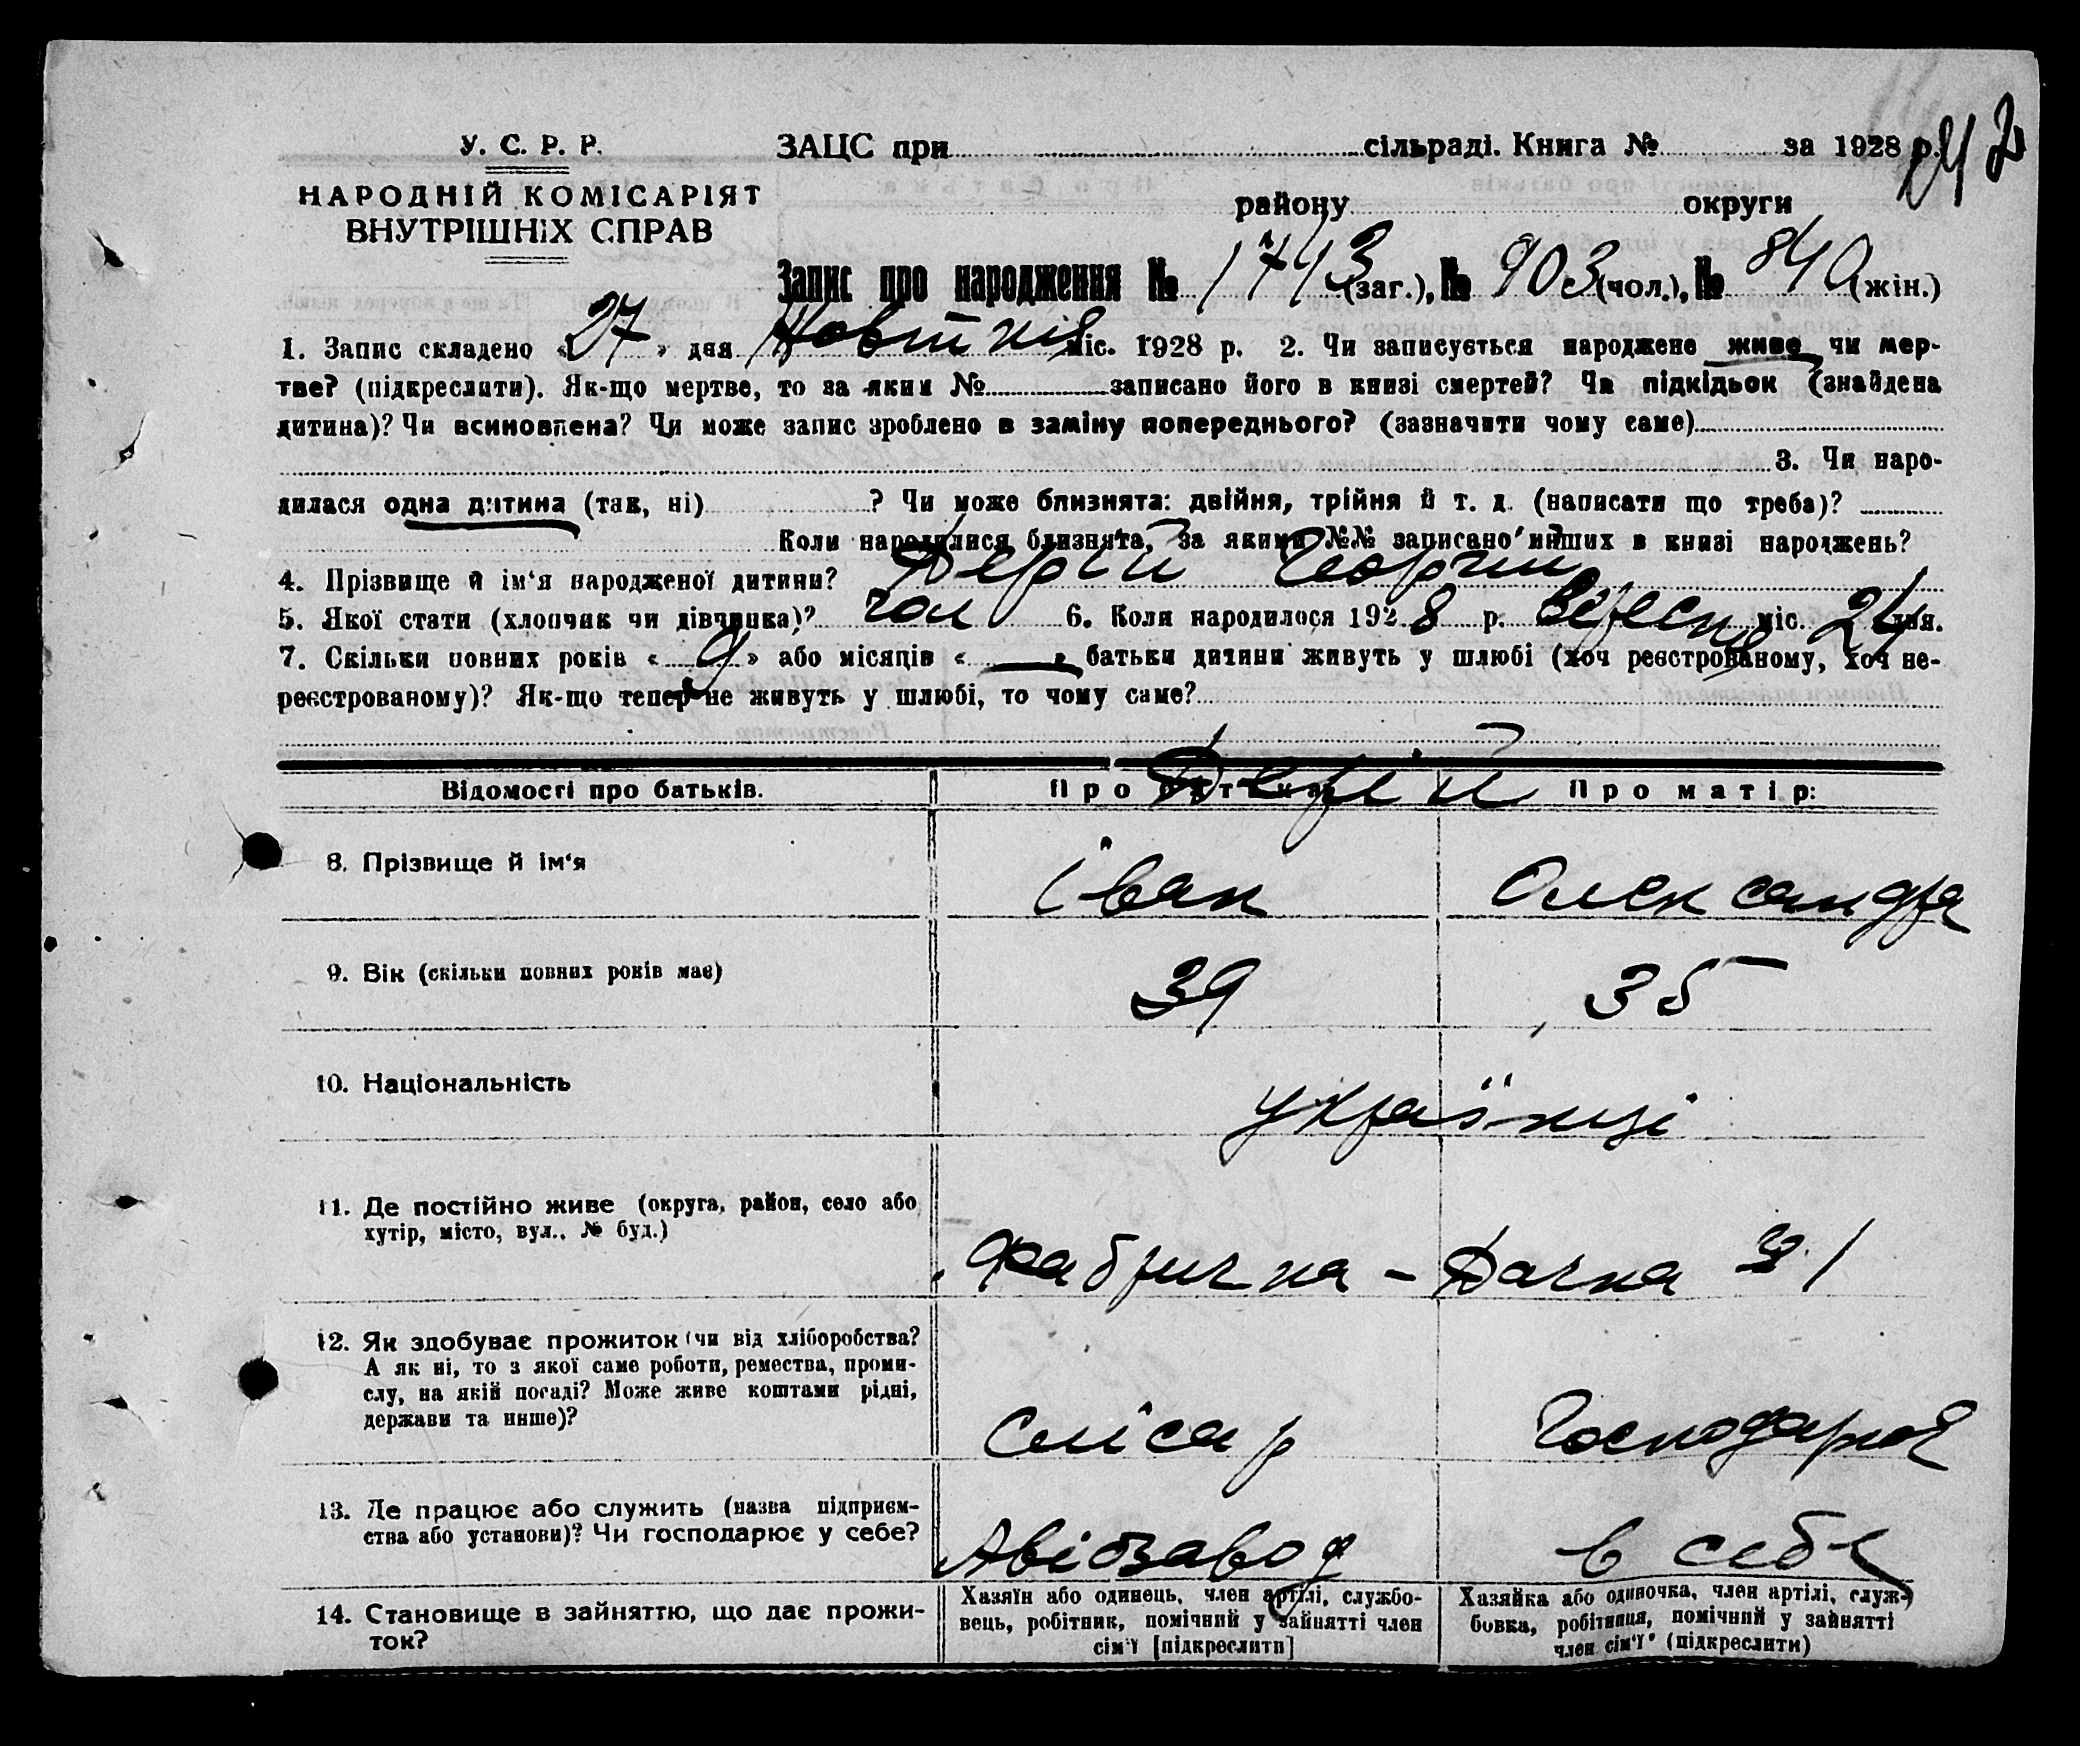 У. С. Р. Р.
НАРОДНІЙ КОМІСАРІЯТ
ВНУТРІШНІХ СПРАВ
ЗАЦС при сільраді. Книга № за 1928 р.
242
району округи
Запис про народження № 1743 (заг.), № 903 (чол.), № 840 (жін.)
1. Запис складено «27» дня Жовтня міс. 1928 р. 2. Чи записується народжене живе чи мер-
тве? (підкреслити). Як-що мертве, то за яким № записано його в книзі смертей? Чи підкідьок (знайдена
дитина)? Чи всиновлена? Чи може запис зроблено в заміну попереднього? (зазначити чому саме)
3. Чи наро-
дилася одна дитина (так, ні) ? Чи може близнята: двійня, трійня й т. д. (написати що треба)?
Коли народилися близнята, за якими №№ записано инших в книзі народжень?
4. Прізвище й ім‘я народженої дитини? Дерій Георгій
5. Якої стати (хлопчик чи дівчинка)? чол 6. Коли народилося 1928 р. Вересня міс. 24 дня.
7. Скільки повних років «9» або місяців «—» батьки дитини живуть у шлюбі (хоч реєстрованому, хоч не-
реєстрованому)? Як-що тепер не живуть у шлюбі, то чому саме?
Відомості про батьків. Про батька: Про матір:
Дерій
8. Прізвище й ім‘я Іван Олександра
9. Вік (скільки повних років має) 39 35
10. Національність Українці
11. Де постійно живе (округа, район, село або
хутір, місто, вул., № буд.)
Фабрична - Дачна 31
12. Як здобуває прожиток (чи від хліборобства?
А як ні, то з якої саме роботи, ремества, проми-
слу, на якій посаді? Може живе коштами рідні,
держави та инше)?
Слюсар Господарює
13. Де працює або служить (назва підприєм-
ства або установи)? Чи господарює у себе?
Авіозавод в себе
14. Становище в зайняттю, що дає прожи-
ток?
Хазяїн або одинець, член артілі, службо-
вець, робітник, помічний у зайнятті член
сім‘ї [підкреслити]
Хазяйка або одиночка, член артілі, служ-
бовка, робітниця, помічний у зайнятті
член сім‘ї (підкреслити)